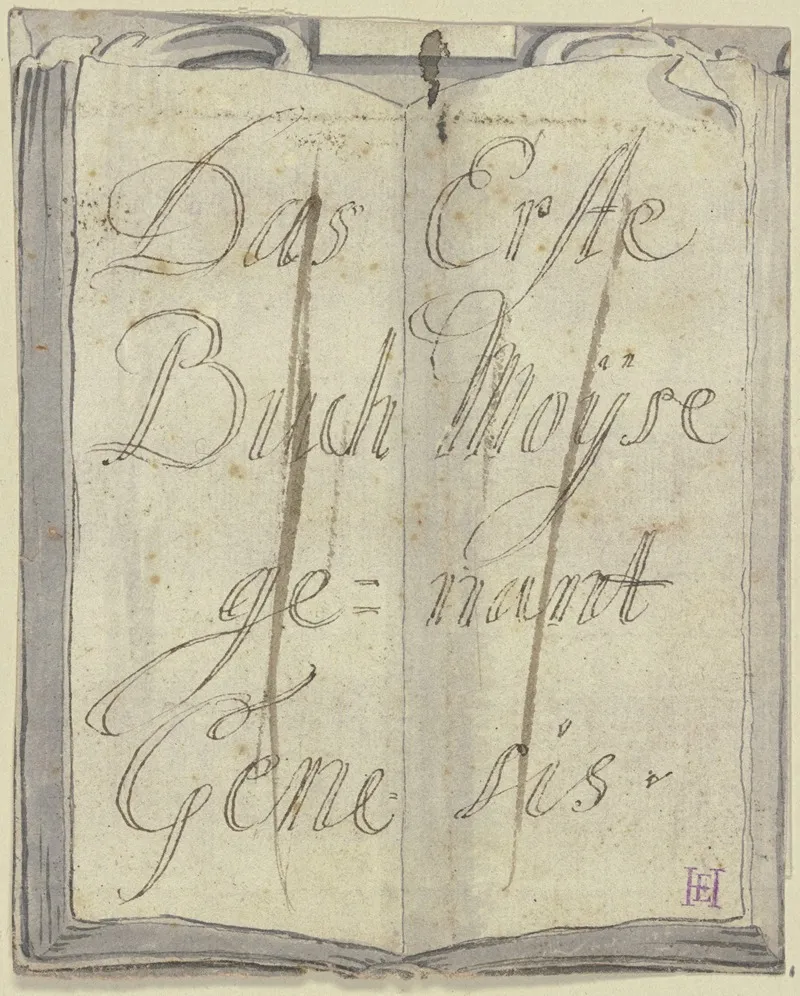 Das Erste
Buch Moÿse
ge= nant
Gene= sis.
HE